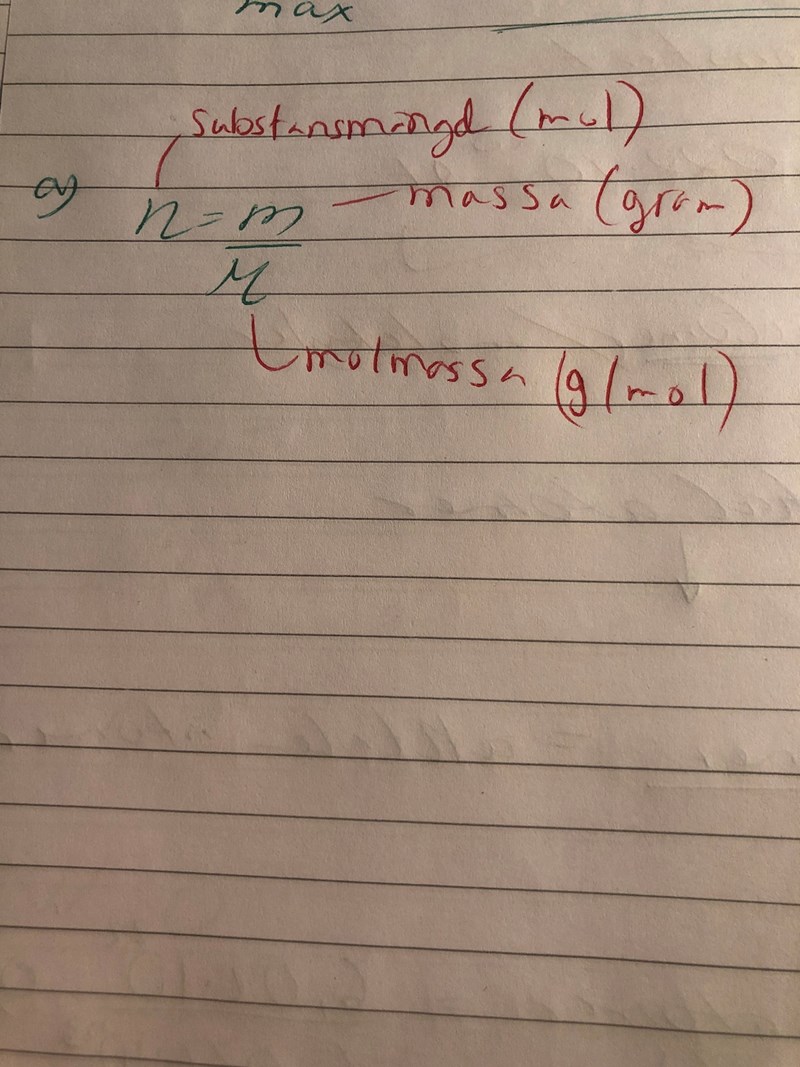 max
substansmängd (mol)
a) n = m — massa (gram)
M
molmassa (g/mol)